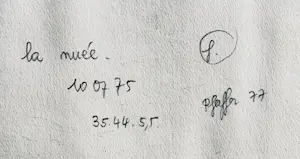 la nuée.
10 07 75
35.44.5,5
f.
Pfaffer 77